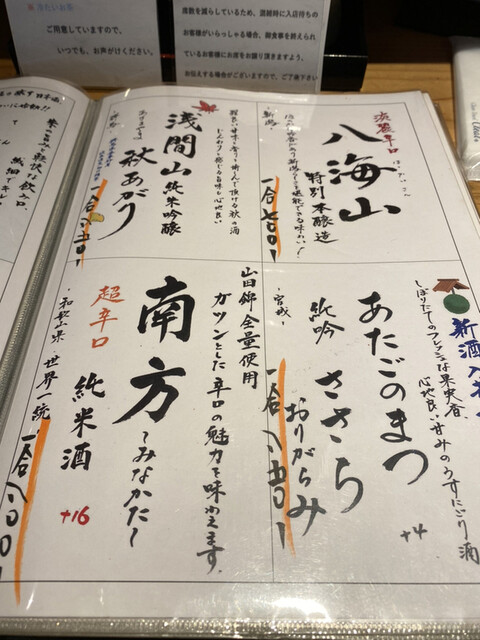 冷たいお茶
ご用意していますので、
いつでも、お声がけください。
席数を減らしているため、混雑時に入店待ちの
お客様がいらっしゃる場合、御食事を終えられ
ているお客様にお席をお譲り頂きますよう、
お伝えする場合がございますので、ご了承下さい
淡麗辛口
八海山
はっかいさん
特別本醸造
・新潟・
一合七〇〇-
浅間山
純米吟醸
秋あがり
じんわりと感じる旨味と心地良い
新酒入荷
しぼりたてのフレッシュな果実香
心地良い甘みのうすにごり酒
あたごのまつ
+4
純吟 ささら
おりがらみ
・宮城・
山田錦全量使用
ガツンとした辛口の魅力を味わえます。
南方
〜みなかた〜
超辛口
純米酒
+16
・和歌山県・世界一統
一合八〇〇-